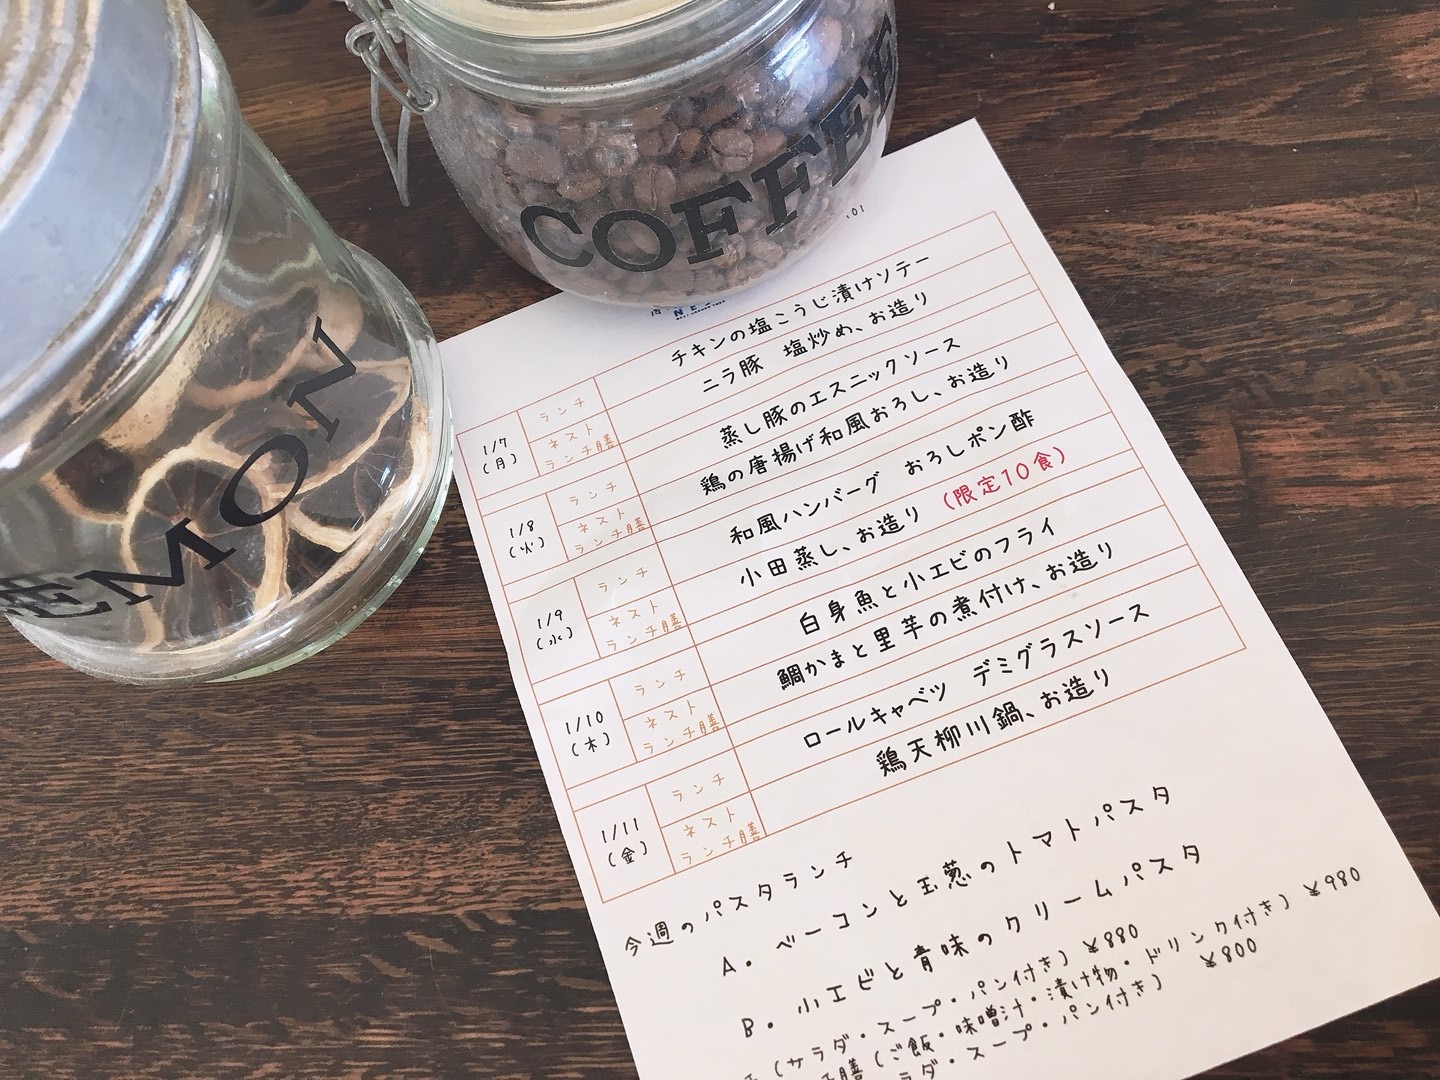 COFFEE
EMON
NE
1/7
(月)
ランチ
チキンの塩こうじ漬けソテー
ネスト
ランチ膳
ニラ豚 塩炒め、お造り
1/8
(火)
ランチ
蒸し豚のエスニックソース
ネスト
ランチ膳
鶏の唐揚げ和風おろし、お造り
1/9
(水)
ランチ
和風ハンバーグ おろしポン酢
ネスト
ランチ膳
小田蒸し、お造り (限定10食)
1/10
(木)
ランチ
白身魚と小エビのフライ
ネスト
ランチ膳
鯛かまと里芋の煮付け、お造り
1/11
(金)
ランチ
ロールキャベツ デミグラスソース
ネスト
ランチ膳
鶏天柳川鍋、お造り
今週のパスタランチ
A. ベーコンと玉葱のトマトパスタ
B. 小エビと青味のクリームパスタ
(サラダ・スープ・パン付き) ¥880
膳 (ご飯・味噌汁・漬け物・ドリンク付き) ¥980
ラダ・スープ・パン付き) ¥800